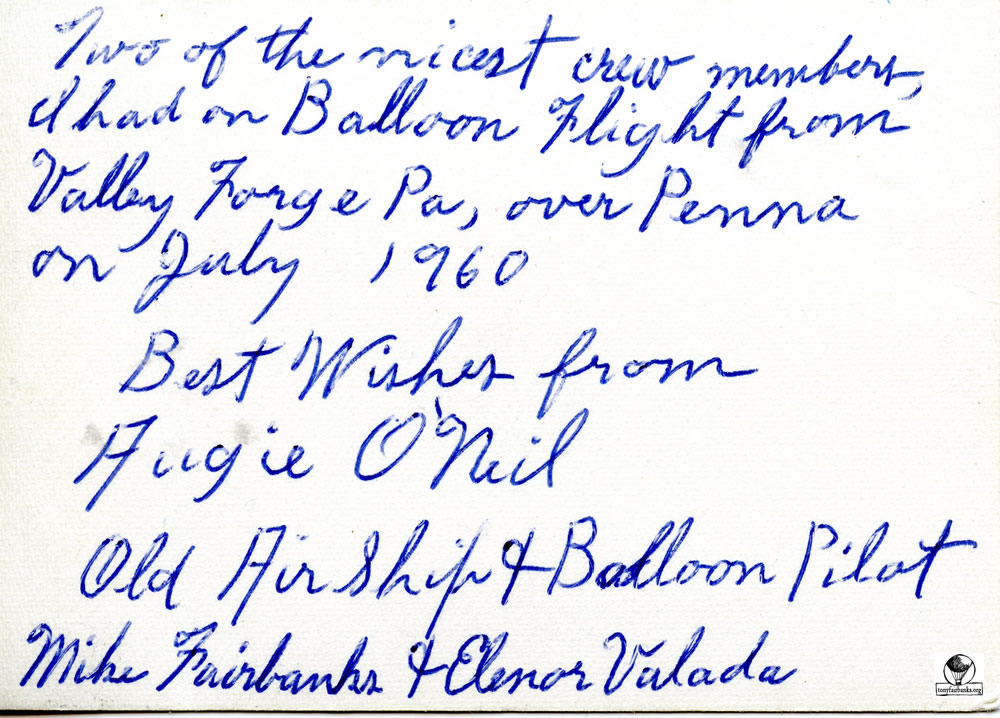 Two of the nicest crew members,
I had on Balloon Flight from
Valley Forge Pa, over Penna
on July 1960
Best Wishes from
Augie O'Neil
Old Air Ship & Balloon Pilot
Mike Fairbanks & Elenor Valada
tonyfairbanks.org